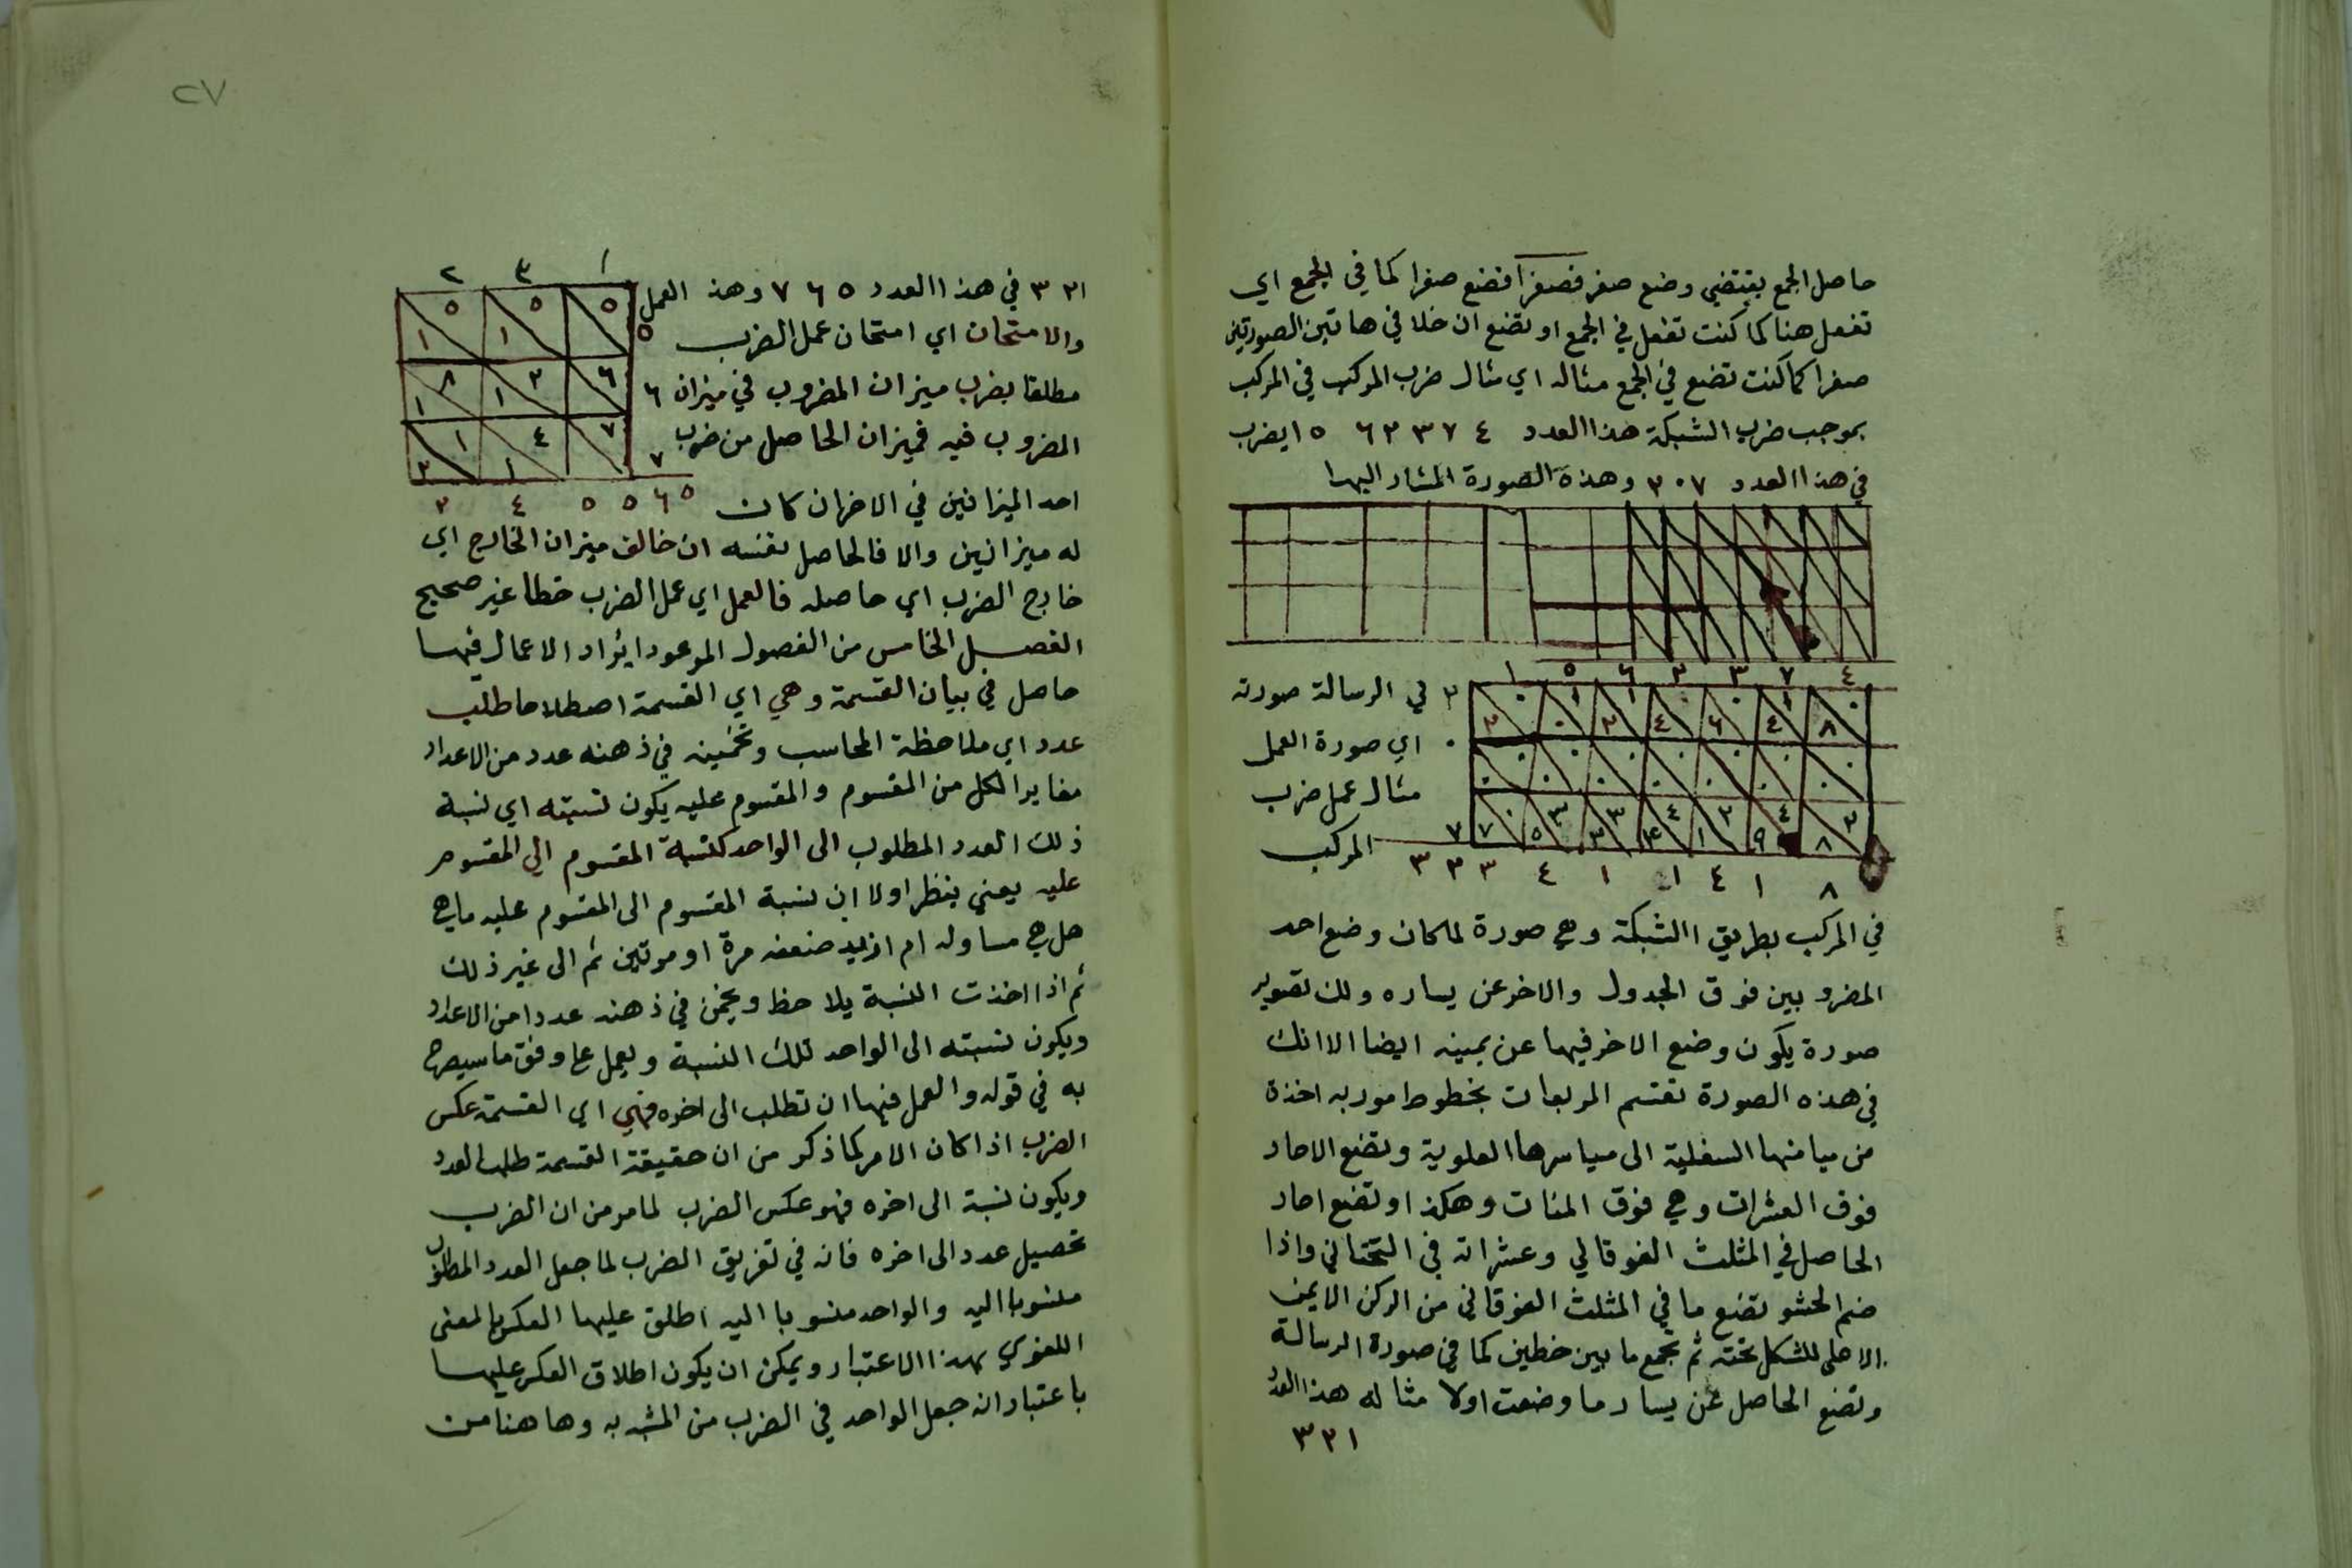 حاصل الجمع يقتضي وضع صفر فصفرا فضع صفرا كما في الجمع اي
تفعل هنا كما كنت تفعل في الجمع او تضع ان خلا في هاتين الصورتين
صفرا كما كنت تضع في الجمع مثاله اي مثال ضرب المركب في المركب
بموجب ضرب الشبكة هذا العدد ٤ ٧ ٣ ٢ ٦ ٥ ١ يضرب
في هذا العدد ٢٠٧ وهذة الصورة المشار اليها
١ ٥ ٦ ٢ ٣ ٧ ٤
٢ في الرسالة صورته
٠ اي صورة العمل
مثال عمل ضرب
٧ المركب
٣ ٢ ٣ ٤ ١ ١ ٤ ١ ٨
في المركب بطريق الشبكة وهي صورة لمكان وضع احد
المضروبين فوق الجدول والاخر عن يساره ولك تصوير
صورة يكون وضع الاخر فيها عن يمينه ايضا الا انك
في هذه الصورة تقسم المربعات بخطوط موربه اخذة
من ميامنها السفلية الى مياسرها العلوية وتضع الاحاد
فوق العشرات وهي فوق المئات وهكذا او تضع احاد
الحاصل في المثلث الفوقاني وعشراته في التحتاني واذا
ضم الحشو تضع ما في المثلث الفوقاني من الركن الايمن
الاعلى للشكل تحته ثم تجمع ما بين خطين كما في صورة الرسالة
وتضع الحاصل عن يسار ما وضعت اولا مثاله هذا العدد
٣٢١
٢٧
٢ ٣ ١
٣٢١ في هذا العدد ٥ ٦ ٧ وهذ العمل
٥ والامتحان اي امتحان عمل الضرب
مطلقا بضرب ميزان المضروب في ميزان ٦
المضروب فيه فميزان الحاصل من ضرب ٧
احد الميزانين في الاخر ان كان
٢ ٤ ٥ ٥ ٦ ٥
له ميزانين والا فالحاصل نفسه ان خالف ميزان الخارج اي
خارج الضرب اي حاصله فالعمل اي عمل الضرب خطا غير صحيح
الفصل الخامس من الفصول الموعود ايراد الاعمال فيها
حاصل في بيان القسمة وهي اي القسمة اصطلاحا طلب
عدد اي ملاحظة المحاسب وتخمينه في ذهنه عدد من الاعداد
مغايرا لكل من المقسوم والمقسوم عليه يكون نسبته اي نسبة
ذلك العدد المطلوب الى الواحد كنسبة المقسوم الى المقسوم
عليه يعني ينظر اولا ان نسبة المقسوم الى المقسوم عليه ما هي
هل هي مساوله ام ازيد ضعفه مرة او مرتين ثم الى غير ذلك
ثم اذا اخذت النسبة يلاحظ ويخمن في ذهنه عددا من الاعداد
ويكون نسبته الى الواحد تلك النسبة ويعمل على وفق ما سيصرح
به في قوله والعمل فيها ان تطلب الى اخره فهي اي القسمة عكس
الضرب اذا كان الامر كما ذكر من ان حقيقة القسمة طلب العدد
ويكون نسبة الى اخره فهو عكس الضرب لما مر من ان الضرب
تحصيل عدد الى اخره فانه في تفريق الضرب لما جعل العدد المطلوب
منسوبا اليه والواحد منسوبا اليه اطلق عليها العكس بالمعنى
اللغوي بهذا الاعتبار ويمكن ان يكون اطلاق العكس عليها
باعتبار انه جعل الواحد في الضرب من المشبه به وها هنا من